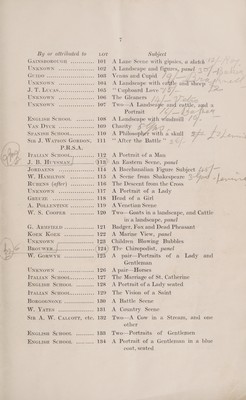 7
By or attributed to LOT Subject
GAINSBOROUGH ............ 101 A Lane Scene with gipsies, a sketch
UNKNOWN .................. 102 A Landscape and figures, panel
GUIDO ....................... 103 Venus and Cupid
UNKNOWN .................. 104 A Landscape with cattle and sheep
J. T. LUCAS .................. 105 "Cupboard Love"
UNKNOWN .................. 106 The Gleaners
UNKNOWN .................. 107 Two—A Landscape and cattle, and a
Portrait
ENGLISH SCHOOL ......... 108 A Landscape with windmill
VAN DYCK .................. 109 Charity
SPANISH SCHOOL ......... 110 A Philosopher with a skull
SIR J. WATSON GORDON, 111 "After the Battle"
P.R.S.A.
ITALIAN SCHOOL ......... 112 A Portrait of a Man
J. B. HUNSULL ............ 113 An Eastern Scene, panel
JORDAENS .................. 114 A Bacchanalian Figure Subject
W. HAMILTON ............ 115 A Scene from Shakespeare
RUBENS (after) ............ 116 The Descent from the Cross
UNKNOWN .................. 117 A Portrait of a Lady
GREUZE .................. 118 Head of a Girl
A. POLLENTINE ............ 119 A Venetian Scene
W. S. COOPER ............ 120 Two—Goats in a landscape, and Cattle
in a landscape, panel
G. ARMFIELD ............ 121 Badger, Fox and Dead Pheasant
KOEK KOEK ............... 122 A Marine View, panel
UNKNOWN .................. 123 Children Blowing Bubbles
BROUWER .................. 124 The Chiropodist, panel
W. GORWYK ............... 125 A pair—Portraits of a Lady and
Gentleman
UNKNOWN .................. 126 A pair—Horses
ITALIAN SCHOOL ......... 127 The Marriage of St. Catherine
ENGLISH SCHOOL ......... 128 A Portrait of a Lady seated
ITALIAN SCHOOL ......... 129 The Vision of a Saint
BORGOGNONE ............ 130 A Battle Scene
W. YATES .................. 131 A Country Scene
SIR A. W. CALLOTT, etc. 132 Two—A Cow in a Stream, and one
other
ENGLISH SCHOOL ......... 133 Two—Portraits of Gentlemen
ENGLISH SCHOOL ......... 134 A Portrait of a Gentleman in a blue
coat, seated